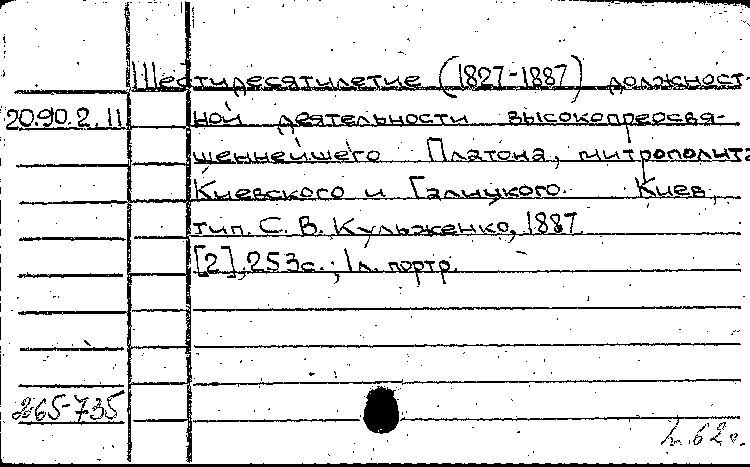 Шестидесятилетие (1827-1887) должност-
20.90.2.11 ной деятельности высокопреосвя-
щеннейшего Платона, митрополита
Киевского и Галицкого. Киев,
тип. С. В. Кульженко, 1887.
[2], 253с.; 1л. портр.
265-735